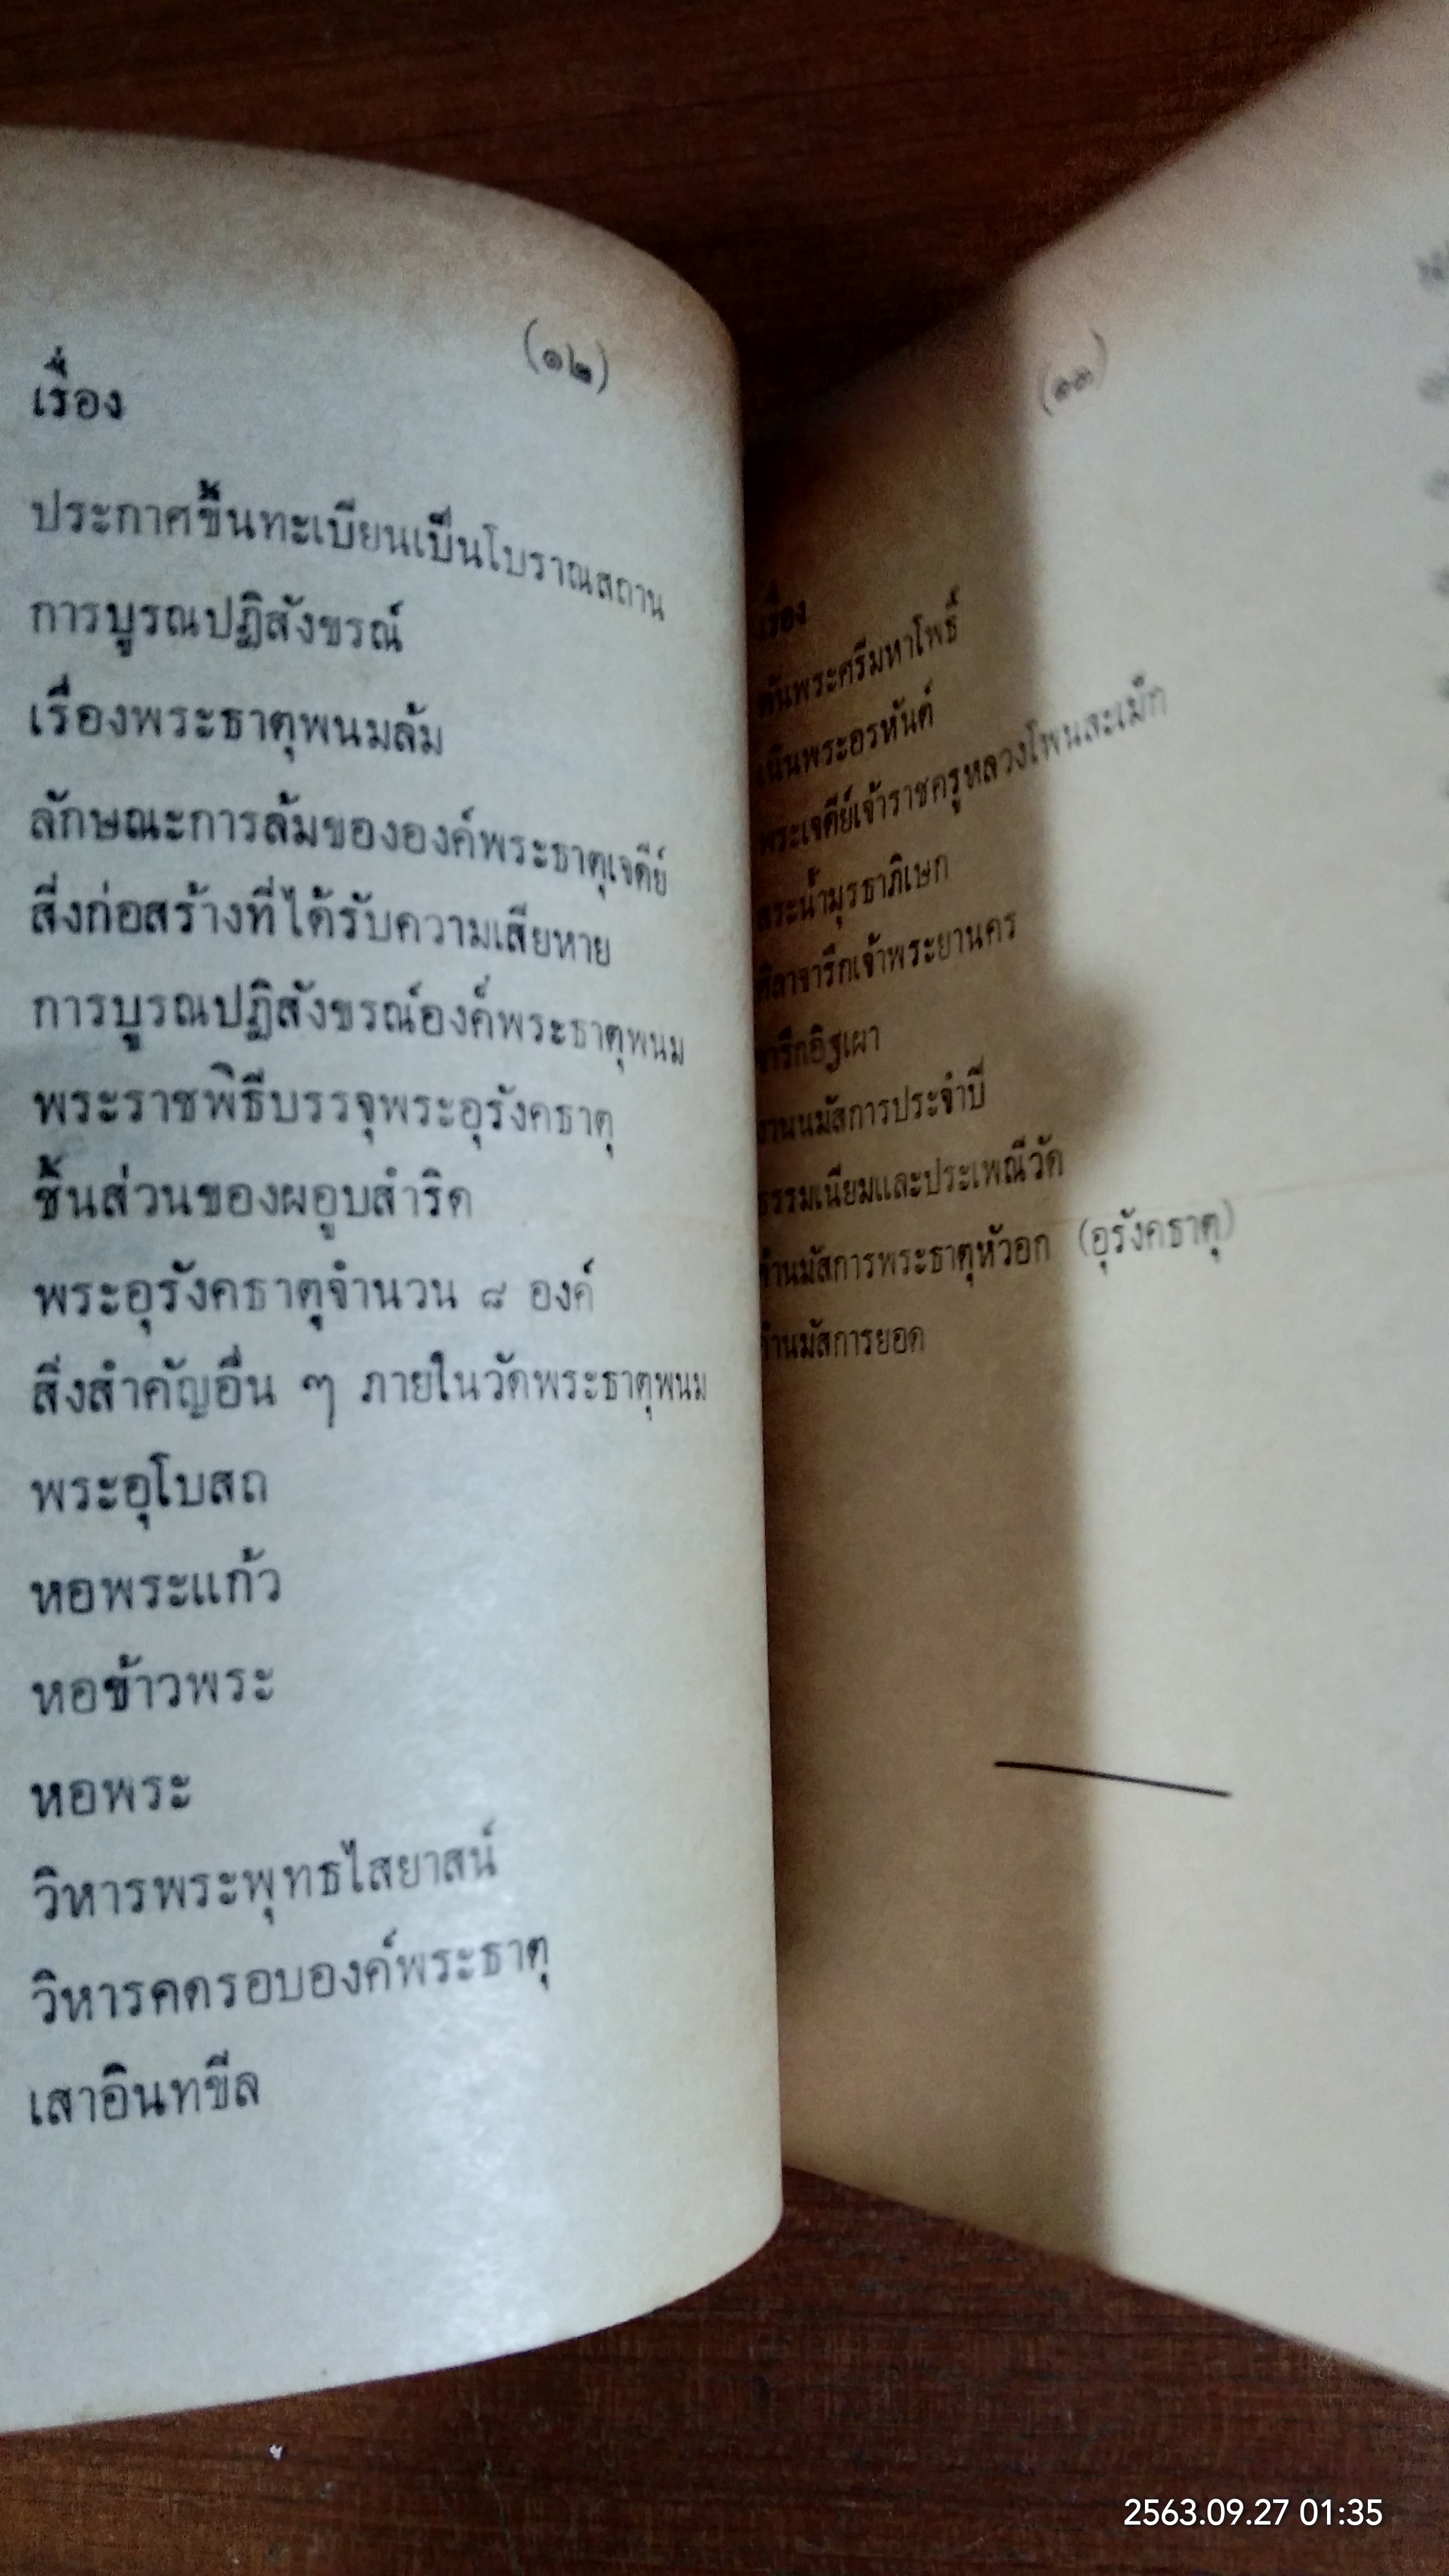 (๑๒)
เรื่อง
ประกาศขึ้นทะเบียนเป็นโบราณสถาน
การบูรณปฏิสังขรณ์
เรื่องพระธาตุพนมล้ม
ลักษณะการล้มขององค์พระธาตุเจดีย์
สิ่งก่อสร้างที่ได้รับความเสียหาย
การบูรณปฏิสังขรณ์องค์พระธาตุพนม
พระราชพิธีบรรจุพระอุรังคธาตุ
ชิ้นส่วนของผอูบสำริด
พระอุรังคธาตุจำนวน ๘ องค์
สิ่งสำคัญอื่น ๆ ภายในวัดพระธาตุพนม
พระอุโบสถ
หอพระแก้ว
หอข้าวพระ
หอพระ
วิหารพระพุทธไสยาสน์
วิหารคดรอบองค์พระธาตุ
เสาอินทขีล
(๑๓)
เรื่อง
ต้นพระศรีมหาโพธิ์
เนินพระอรหันต์
พระเจดีย์เจ้าราชครูหลวงโพนสะเม็ก
สระน้ำมุรธาภิเษก
ศิลาจารึกเจ้าพระยานคร
จารึกอิฐเผา
งานนมัสการประจำปี
ธรรมเนียมและประเพณีวัด
คำนมัสการพระธาตุหัวอก (อุรังคธาตุ)
คำนมัสการยอด
2563.09.27 01:35